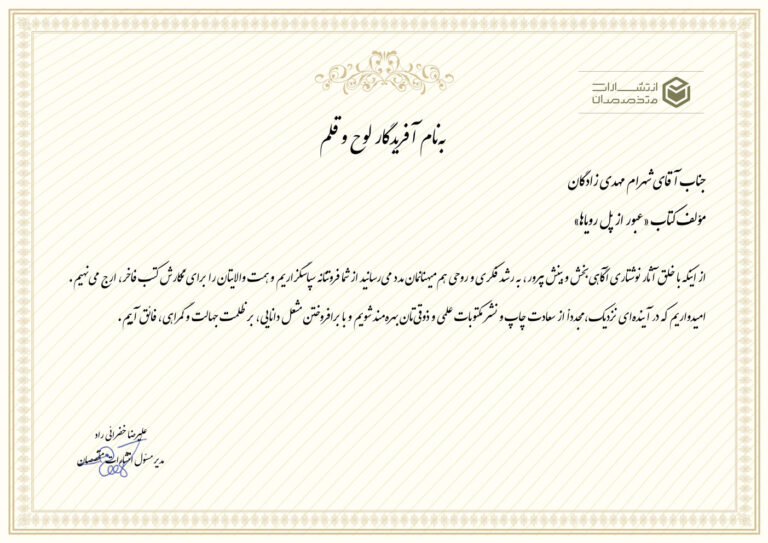 انتشارات
متخصصان
به‌نام آفریدگار لوح و قلم
جناب آقای شهرام مهدی زادگان
مؤلف کتاب «عبور از پل رویاها»
از اینکه با خلق آثار نوشتاری آگاهی بخش و بینش پرور، به رشد فکری و روحی هم میهنانمان مدد می رسانید از شما فروتنانه سپاسگزاریم و همت والایتان را برای نگارش کتب فاخر، ارج می نهیم.
امیدواریم که در آینده‌ای نزدیک، مجدداً از سعادت چاپ و نشر مکتوبات علمی و ذوقی‌تان بهره مند شویم و با برافروختن مشعل دانایی، بر ظلمت جهالت و گمراهی، فائق آییم.
علیرضا خفرائی راد
مدیر مسئول انتشارات متخصصان